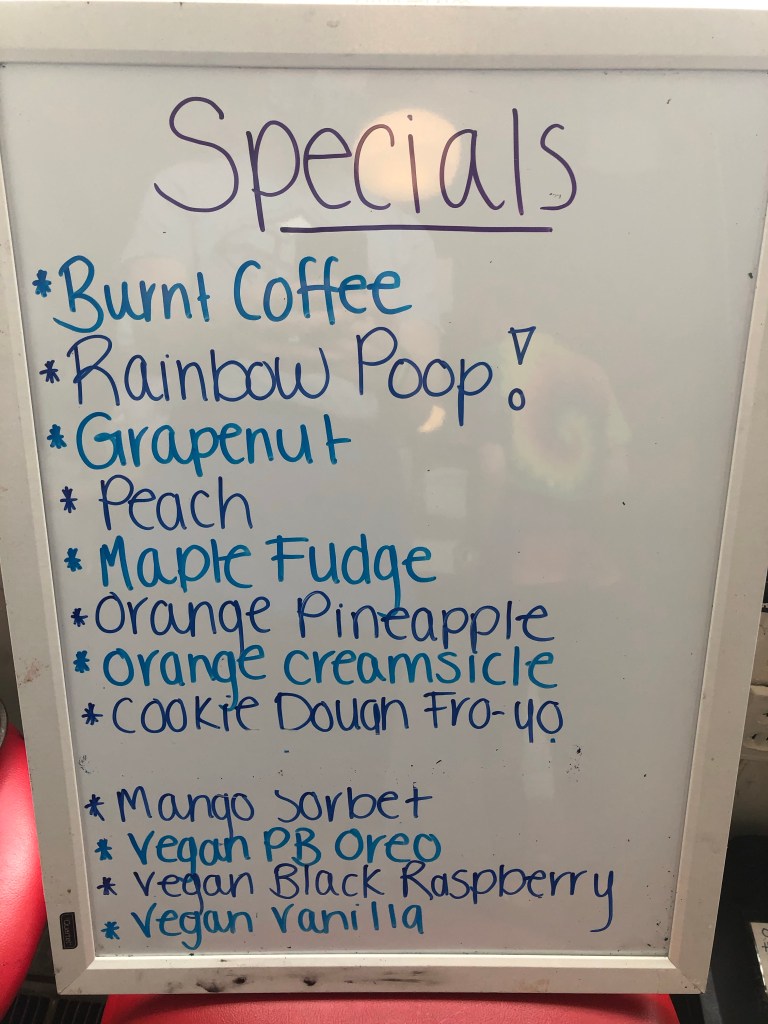 Specials
* Burnt Coffee
* Rainbow Poop!
* Grapenut
* Peach
* Maple Fudge
* Orange Pineapple
* Orange Creamsicle
* Cookie Dough Fro-yo
* Mango Sorbet
* Vegan PB Oreo
* Vegan Black Raspberry
* Vegan Vanilla